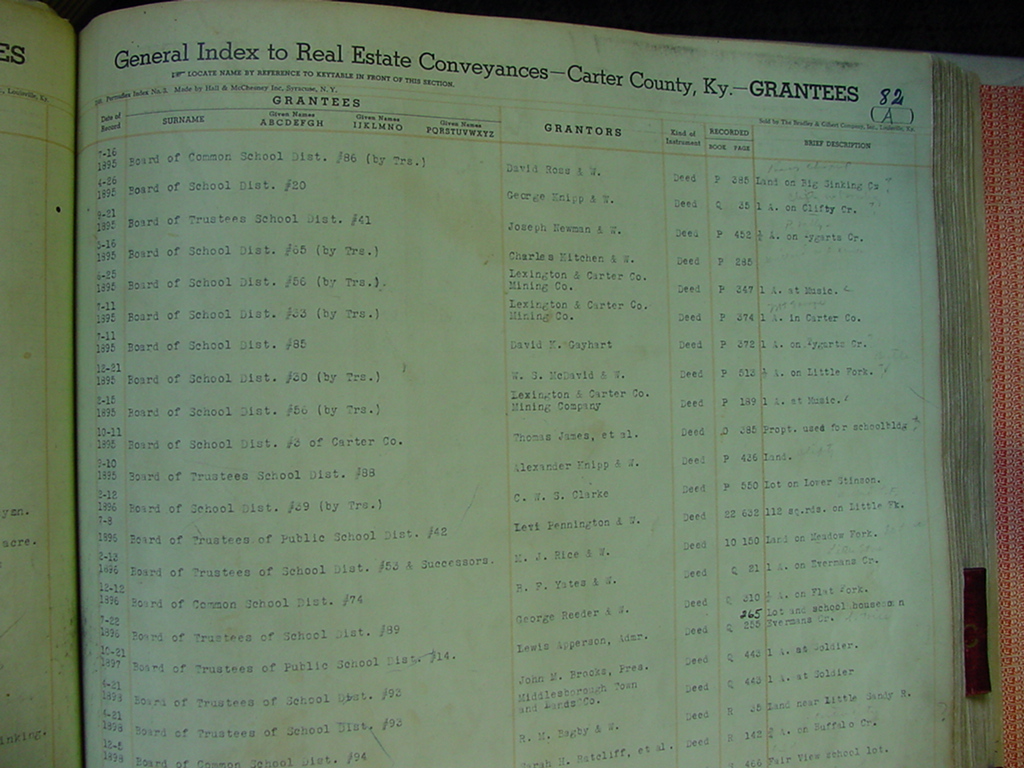 ES
General Index to Real Estate Conveyances—Carter County, Ky.—GRANTEES
82
(A)
LOCATE NAME BY REFERENCE TO KEYTABLE IN FRONT OF THIS SECTION.
Made by Hall & McChesney Inc. Syracuse, N. Y.
Sold by The Bradley & Gilbert Company, Inc., Louisville, Ky.
, Louisville, Ky.
GRANTEES
Date of Record SURNAME Given Names ABCDEFGH Given Names IJKLMNO Given Names PQRSTUVWXYZ GRANTORS Kind of Instrument RECORDED BOOK PAGE BRIEF DESCRIPTION
7-16 1895 Board of Common School Dist. #86 (by Trs.) David Ross & W. Deed P 385 Land on Big Sinking
4-26 1895 Board of School Dist. #20 George Knipp & W. Deed Q 35 1 A. on Clifty Cr.
1895 Board of Trustees School Dist. #41 Joseph Newman & W. Deed P 452 ½ A. on Tygarts Cr.
1895 Board of School Dist. #65 (by Trs.) Charles Kitchen & W. Deed P 285
6-25 1895 Board of School Dist. #56 (by Trs.) Lexington & Carter Co. Mining Co. Deed P 347 1 A. at Music.
7-11 1895 Board of School Dist. #33 (by Trs.) Lexington & Carter Co. Mining Co. Deed P 374 1 A. in Carter Co.
7-11 1895 Board of School Dist. #85 David K. Gayhart Deed P 372 1 A. on Tygarts Cr.
12-21 1895 Board of School Dist. #30 (by Trs.) W. S. McDavid & W. Deed P 513 ½ A. on Little Fork.
2-15 1895 Board of School Dist. #56 (by Trs.) Lexington & Carter Co. Mining Company Deed P 189 1 A. at Music.
10-11 1895 Board of School Dist. #3 of Carter Co. Thomas James, et al. Deed O 385 Propt. used for schoolbldg
1895 Board of Trustees School Dist. #88 Alexander Knipp & W. Deed P 436 Land.
2-12 1896 Board of School Dist. #39 (by Trs.) C. W. S. Clarke Deed P 550 Lot on Lower Stinson.
7-8 1896 Board of Trustees of Public School Dist. #42 Levi Pennington & W. Deed 22 632 112 sq.rds. on Little Fk.
2-13 1896 Board of Trustees of School Dist. #53 & Successors. M. J. Rice & W. Deed 10 150 Land on Meadow Fork.
12-12 1896 Board of Common School Dist. #74 B. F. Yates & W. Deed Q 21 1 A. on Evermans Cr.
7-22 1896 Board of Trustees of School Dist. #89 George Reeder & W. Deed Q 310 ½ A. on Flat Fork.
10-21 1897 Board of Trustees of Public School Dist. #14. Lewis Apperson, Admr. Deed Q 265 255 Lot and school house on Evermans Cr.
4-21 1898 Board of Trustees of School Dist. #93 John M. Brooks, Pres. Middlesborough Town and Lands Co. Deed Q 443 1 A. at Soldier.
4-21 1898 Board of Trustees of School Dist. #93 R. M. Bagby & W. Deed Q 443 1 A. at Soldier
12-5 1898 Board of Common School Dist. #94 Sarah H. Ratcliff, et al. Deed R 35 Land near Little Sandy R.
R 142 ½ A. on Buffalo Cr.
466 Fair View school lot.
acre.
inking.